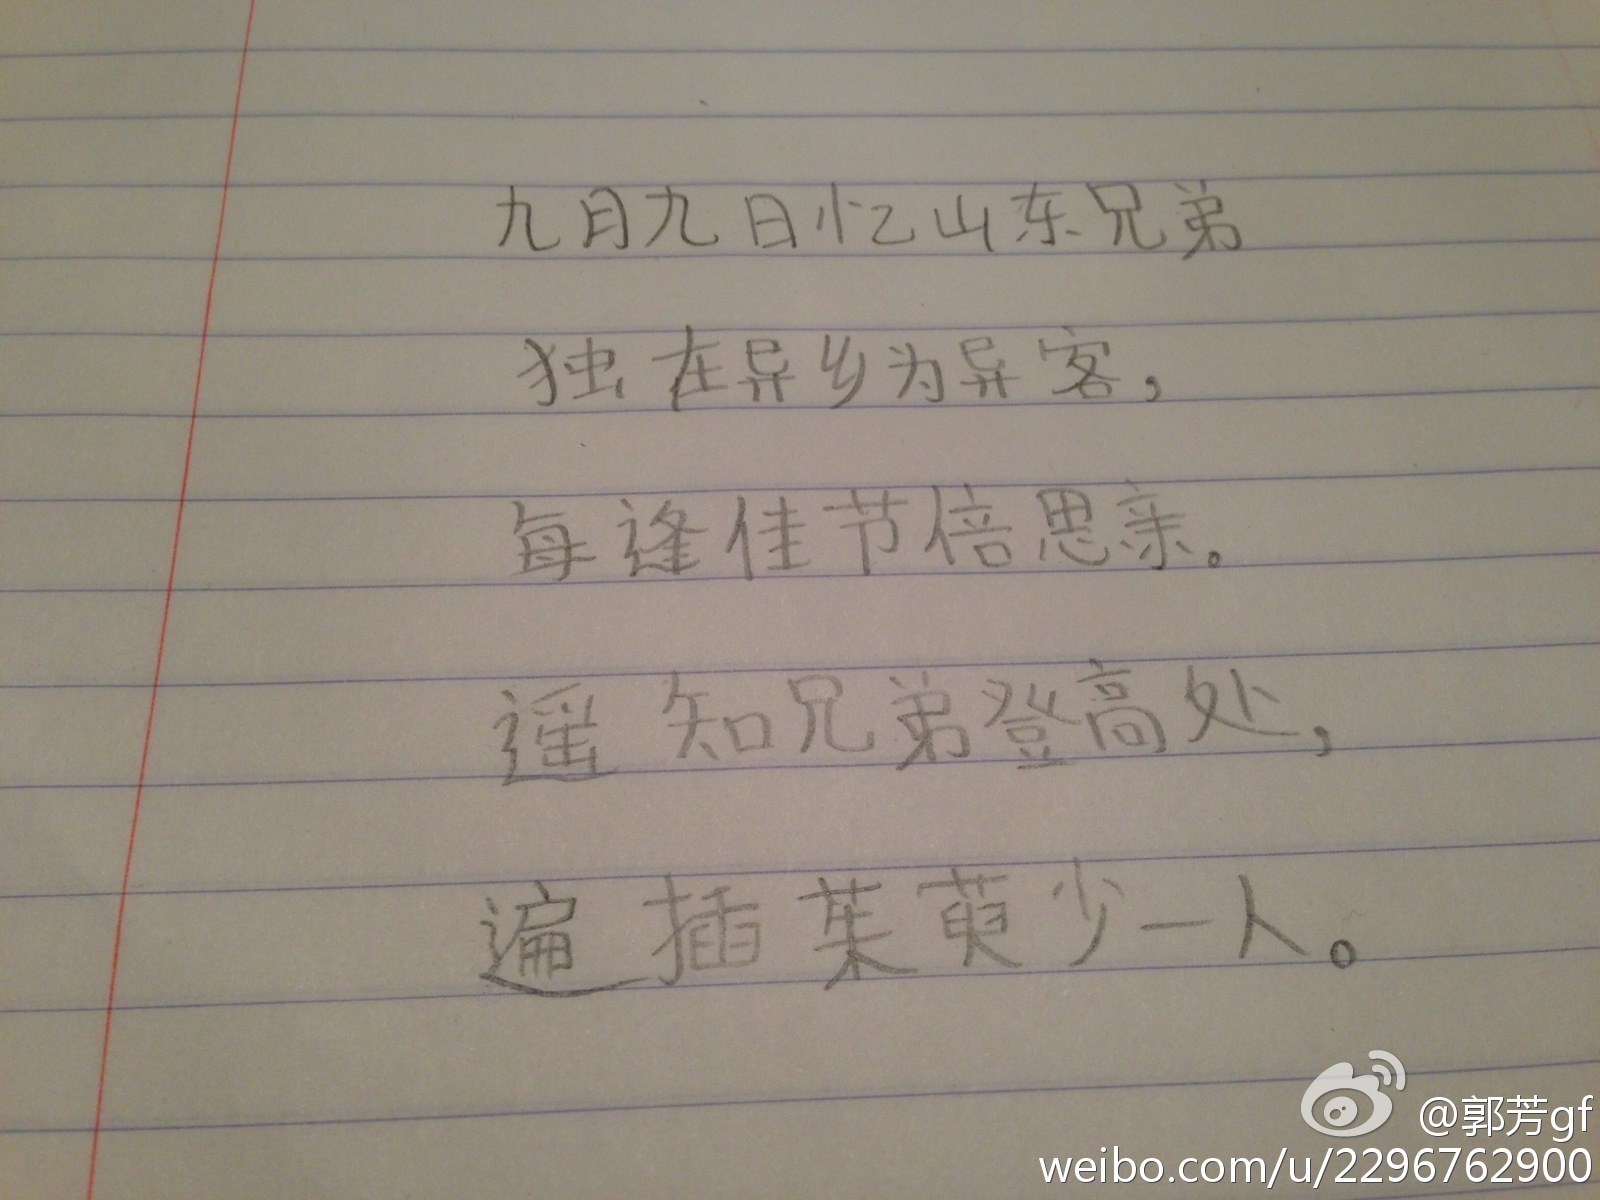 九月九日忆山东兄弟
独在异乡为异客，
每逢佳节倍思亲。
遥知兄弟登高处，
遍插茱萸少一人。
@郭芳gf
weibo.com/u/2296762900